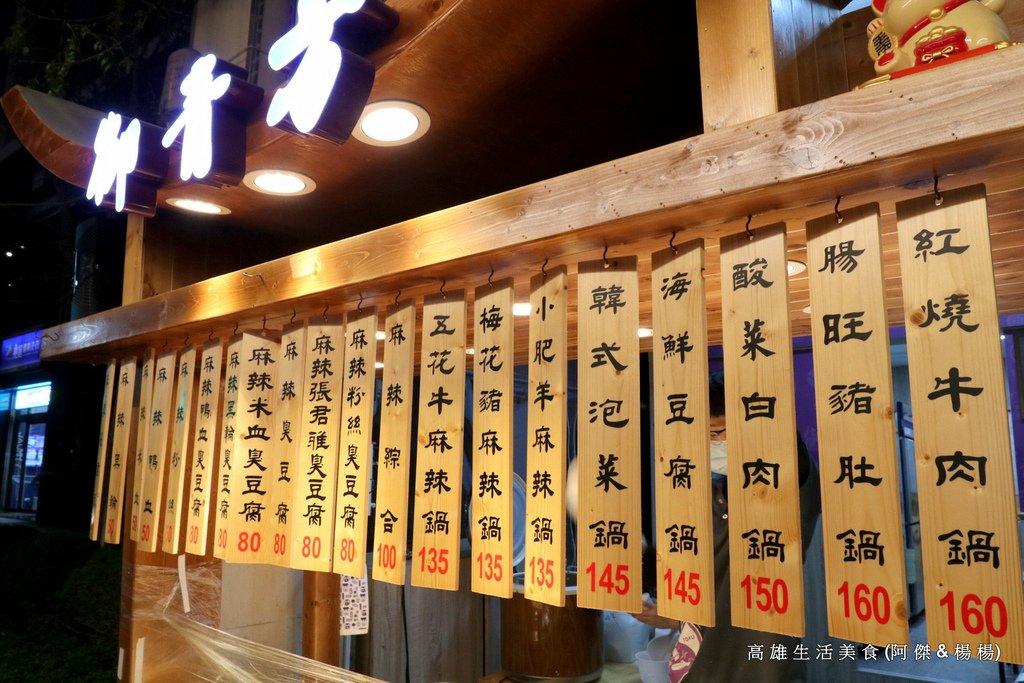 御青方
紅燒牛肉鍋 160
腸旺豬肚鍋 160
酸菜白肉鍋 150
海鮮豆腐鍋 145
韓式泡菜鍋 145
小肥羊麻辣鍋 135
梅花豬麻辣鍋 135
五花牛麻辣鍋 135
麻辣綜合 100
麻辣粉絲臭豆腐 80
麻辣張君雅臭豆腐 80
麻辣臭豆腐 80
麻辣米血臭豆腐 80
麻辣黑輪臭豆腐 80
麻辣鴨血臭豆腐 80
高雄生活美食(阿傑&楊楊)